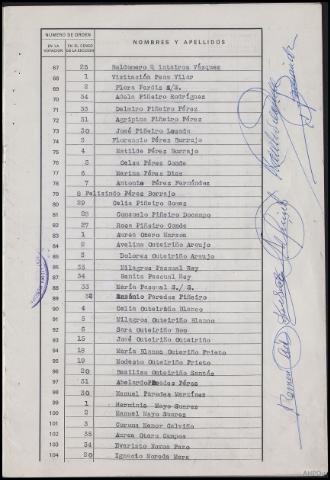 NUMERO DE ORDEN
NOMBRES Y APELLIDOS
EN LA VOTACION
EN EL CENSO DE LA SECCION
67 25 Baldomero Quinteiros Vázquez
68 1 Visitación Pena Vilar
69 2 Flora
70 34 Adela Piñeiro Rodríguez
71 33 Delmiro Piñeiro Pérez
72 31 Agripina Piñeiro Pérez
73 30 José Piñeiro Losada
74 3 Florencio Pérez Borrajo
75 4 Matilde Pérez Borrajo
76 5 Celsa Pérez Conde
77 6 Marina Pérez Dios
78 7 Antonio Pérez Fernández
79 8 Felisindo Pérez Borrajo
80 29 Celia Piñeiro Gomez
81 28 Consuelo Piñeiro Docampo
82 27 Rosa Piñeiro Conde
83 1 Aurea Otero
84 2 Avelina Outeiriño Araujo
85 3 Dolores Outeiriño Araujo
86 35 Milagros Pascual Rey
87 34 Benita Pascual Rey
88 33 María Pascual S./S.
89 32 Paredes Piñeiro
90 4 Celia Outeiriño Blanco
91 5 Milagros Outeiriño Blanco
92 6 Sara Outeiriño Beo
93 15 José Outeiriño Outeiriño
94 18 María Blanca Outeiriño Prieto
95 19 Modesto Outeiriño Prieto
96 20 Basilisa Outeiriño Santás
97 31 Abelardo Paredes Pérez
98 30 Manuel Paredes Martínez
99 1 Herminia Mayo Suarez
100 2 Manuel Mayo Suarez
101 3 Menor Galviño
102 35 Aurea Otero Campos
103 34 Evaristo Novoa Pazo
104 20 Ignacio Noreda Mera